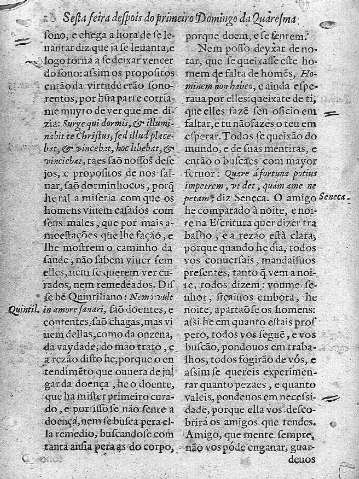 Sesta feira despois do primeiro Domingo da Quaresma
sono, e chega a hora de se le-
uantar diz que ja se leuanta, e
logo torna a se deixar vencer
do sono: assim os propositos
então da virtude erão sono-
rentos, por hũa parte corria-
me muyto de ver que me di-
zia: Surge qui dormis, & illumi-
nabit te Christus, sed illud place-
bat, & vincebat, hoc libebat, &
vinciebat, taes são nossos dese-
jos, e propositos de nos sal-
uar, são dorminhocos, porq̃
he tal a miseria com que os
homens viuem casados com
seus males, que por mais a-
moestações que lhe fação, e
lhe mostrem o caminho da
saude, não sabem viuer sem
elles, nem se querem ver cu-
rados, nem remedeados. Dis-
se bẽ Quintiliano:
Quintil.
in amore sanari, são doentes, e
contentes, são chagas, mas vi-
uem dellas, como da onzena,
da vaydade, do mao trato, e
a rezão disto he, porque o en-
tendimẽto que ouuera de jul-
gar da doença, he o doente,
que ha mister primeiro cura-
do, e por isso se não sente a
doença, nem se busca pera el-
la remedio, buscandose com
tanta ansia pera as do corpo,
porque doem, e se sentem?
Nem posso deyxar de no-
tar, que se queixasse este ho-
mem de falta de homẽs, Ho-
minem non habeo, e ainda espe-
raua por elles: queixate de ti,
que elles fazẽ seu officio em
faltar, e tu não fazes o teu em
esperar. Todos se queixão do
mundo, e de suas mentiras, e
então o buscaes com mayor
feruor: Quare à fortuna potius
impetrem, vt det, quam à me ne
petam? diz Seneca. O amigo
Seneca.
he comparado à noite, e noi-
te na Escritura quer dizer tra-
balho, e a rezão està clara,
porque quando he dia, todos
vos conuersais, mandaisuos
presentes, tanto q̃ vem a noi-
te, todos dizem: youme se-
nhor, fiquaiuos embora, he
noite, apartaõse os homens:
assi he em quanto estais pros-
pero, todos vos segué, e vos
buscão, pondeuos em traba-
lhos, todos fogirão de vòs, e
assim se quereis experimen-
tar quanto pezaes, e quanto
valeis, pondeuos em necessi-
dade, porque ella vos desco-
brirá os amigos que tendes.
Amigo, que mente sempre,
não vos pòde enganar, guar-
deuos